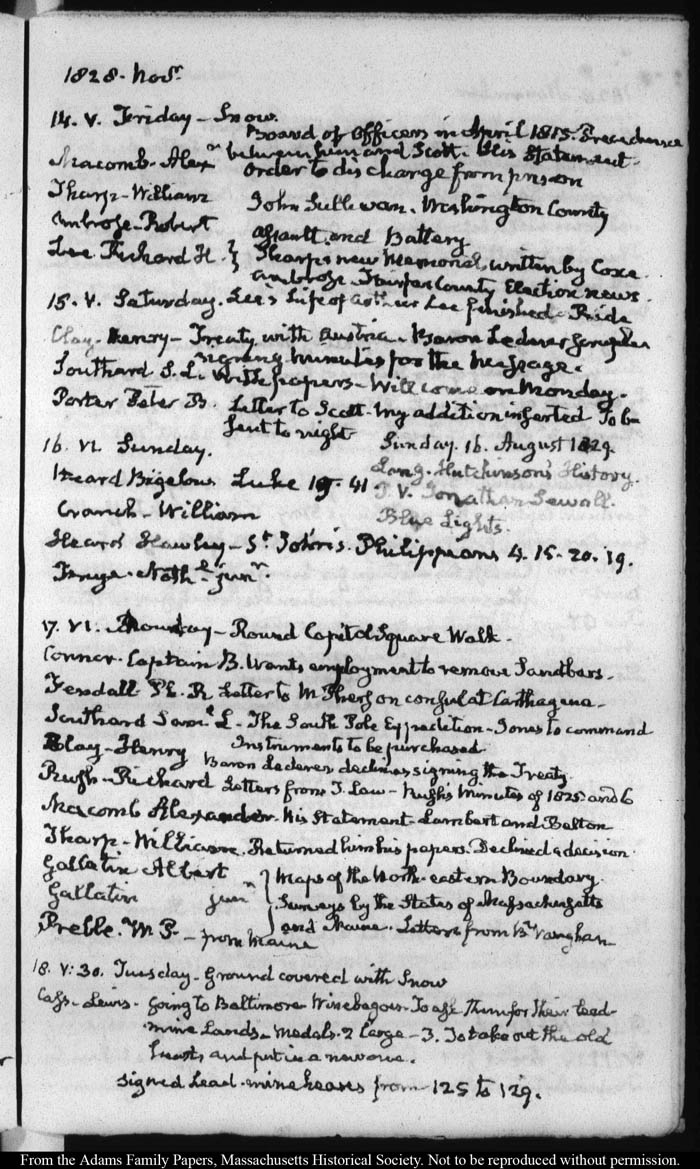 1828. Novr.
14. V. Friday - Snow.
Board of Officers in April 1815. Precedence
Macomb - Alexr between him and Scott. His Statement.
Order to discharge from prison
Tharp - William John Sullivan. Washington County
Ambrose - Robert Assault and Battery
Lee. Richard H. } Tharp's new Memorial, written by Coxe.
Ambrose - Fairfax County Election news.
15. V. Saturday. Lee's Life of Arthur Lee finished. Ride
Clay - Henry - Treaty with Austria. Baron Lederer scruples
signing Minutes for the Message.
Southard S. L. With papers - Will come on Monday.
Porter Peter B. Letter to Scott - My addition inserted To be
sent to night
16. VI. Sunday. Sunday. 16. August 1829.
Heard Bigelow Luke 19. 41 Long. Hutchinson's History.
Cranch - William T. V. Jonathan Sewall.
Blue Lights.
Heard Hawley - St. John's. Philippians 4. 15. 20. 19.
Frye - Nathl. junr.
17. VI. Monday - Round Capitol Square Walk.
Connor. Captain B. Wants employment to remove Sandbars.
Fendall. P. R. Letter to McPherson consul at Carthagena.
Southard Saml. L - The South Pole Expedition - Jones to command
Instruments to be purchased
Clay - Henry Baron Lederer declines signing the Treaty.
Rush - Richard Letters from J. Law - Rush's Minutes of 1825 and 6
Macomb Alexander. His Statement - Lambert and Belton
Tharp - William. Returned him his papers. Declined a decision.
Gallatin Albert } Maps of the North-eastern Boundary
Gallatin junr } Surveys by the States of Massachusetts
Preble. W. P. - from Maine } and Maine. Letters from Bn Vaughan
18. V:30. Tuesday - Ground covered with Snow
Cass - Lewis - Going to Baltimore Winebagoes - To ask them for their lead-
mine Lands - Medals. 2 large - 3. To take out the old
hearts and put in a new one.
Signed Lead-mine leases from 125 to 129.
From the Adams Family Papers, Massachusetts Historical Society. Not to be reproduced without permission.